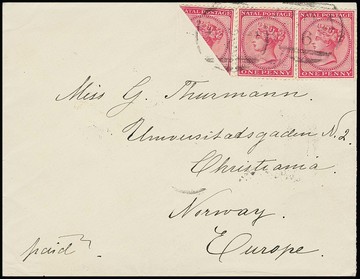 NATAL POSTAGE NATAL POSTAGE NATAL POSTAGE
ONE PENNY ONE PENNY
Miss G. Thurmann.
Universitadsgaden N. 2.
Christiania.
Norway.
paid
Europe.